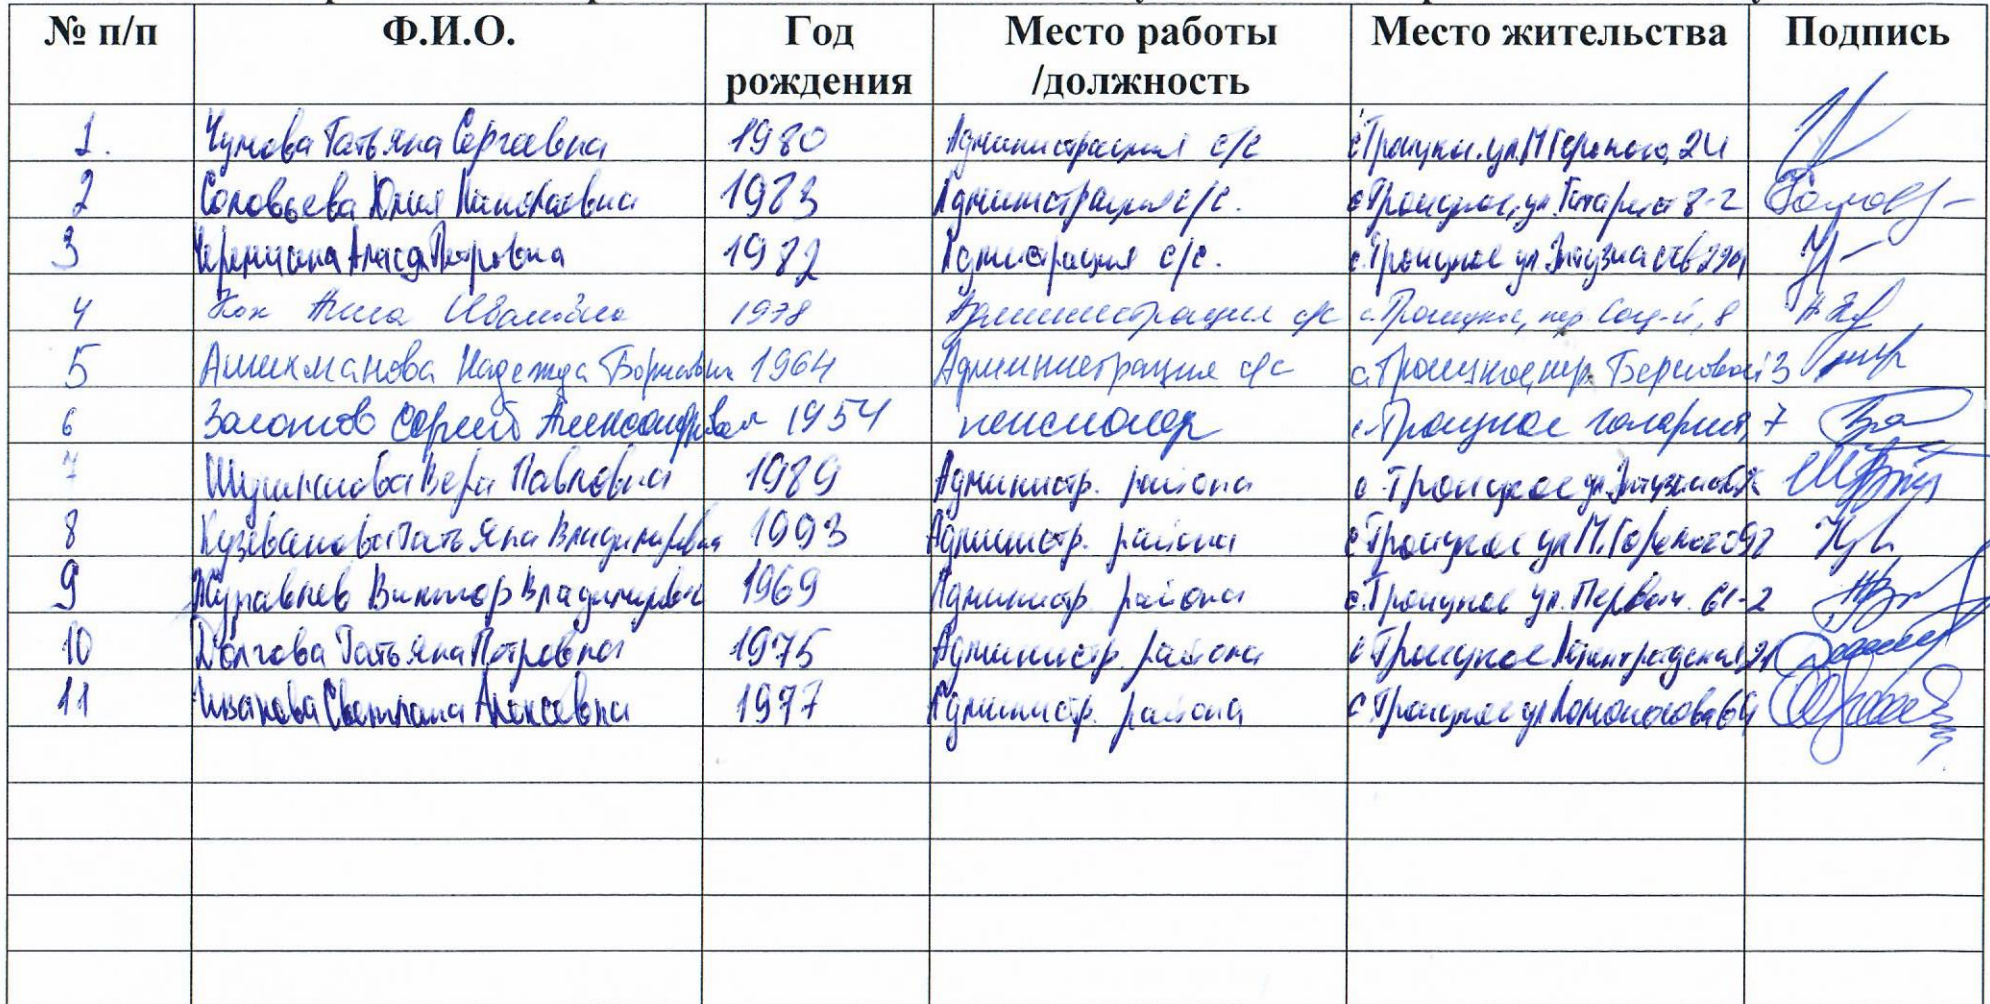 № п/п Ф.И.О. Год рождения Место работы /должность Место жительства Подпись
1. Чумова Татьяна Сергеевна 1980 Администрация с/с с Троицкое ул М Горького, 24
2 Соловьева Юлия Николаевна 1983 Администрация с/с. с Троицкое, ул. Гагарина 8-2
3 Петровна 1982 Адмистрация с/с. с. Троицкое ул Энтузиастов
4 Кох Анна Ивановна 1978 Администрация с/с с. Троицкое, пер. Соц-й, 8
5 Ашихманова Надежда Борисовна 1964 Администрация с/с с. Троицкое, пер. Береговой 13
6 Сергей Александрович 1954 пенсионер с. Троицкое Гагарина, 7
7 Вера Павловна 1989 Администр. района с Троицкое ул Энтузиастов
8 Кузеванова Татьяна Владимировна 1993 Администр. района с Троицкое ул М. Горького 92
9 Журавлев Виктор Владимирович 1969 Администр района с. Троицкое ул. Первом. 61-2
10 Долгова Татьяна Петровна 1975 Администр. района с Троицкое Ленинградская 21
11 Светлана Алексеевна 1977 Администр. района с Троицкое ул Ломоносова 69